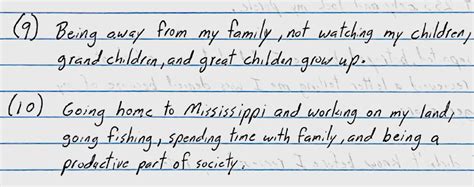 (9) Being away from my family, not watching my children,
grand children, and great childen grow up.
(10) Going home to Mississippi and working on my land,
going fishing, spending time with family, and being a
productive part of society.